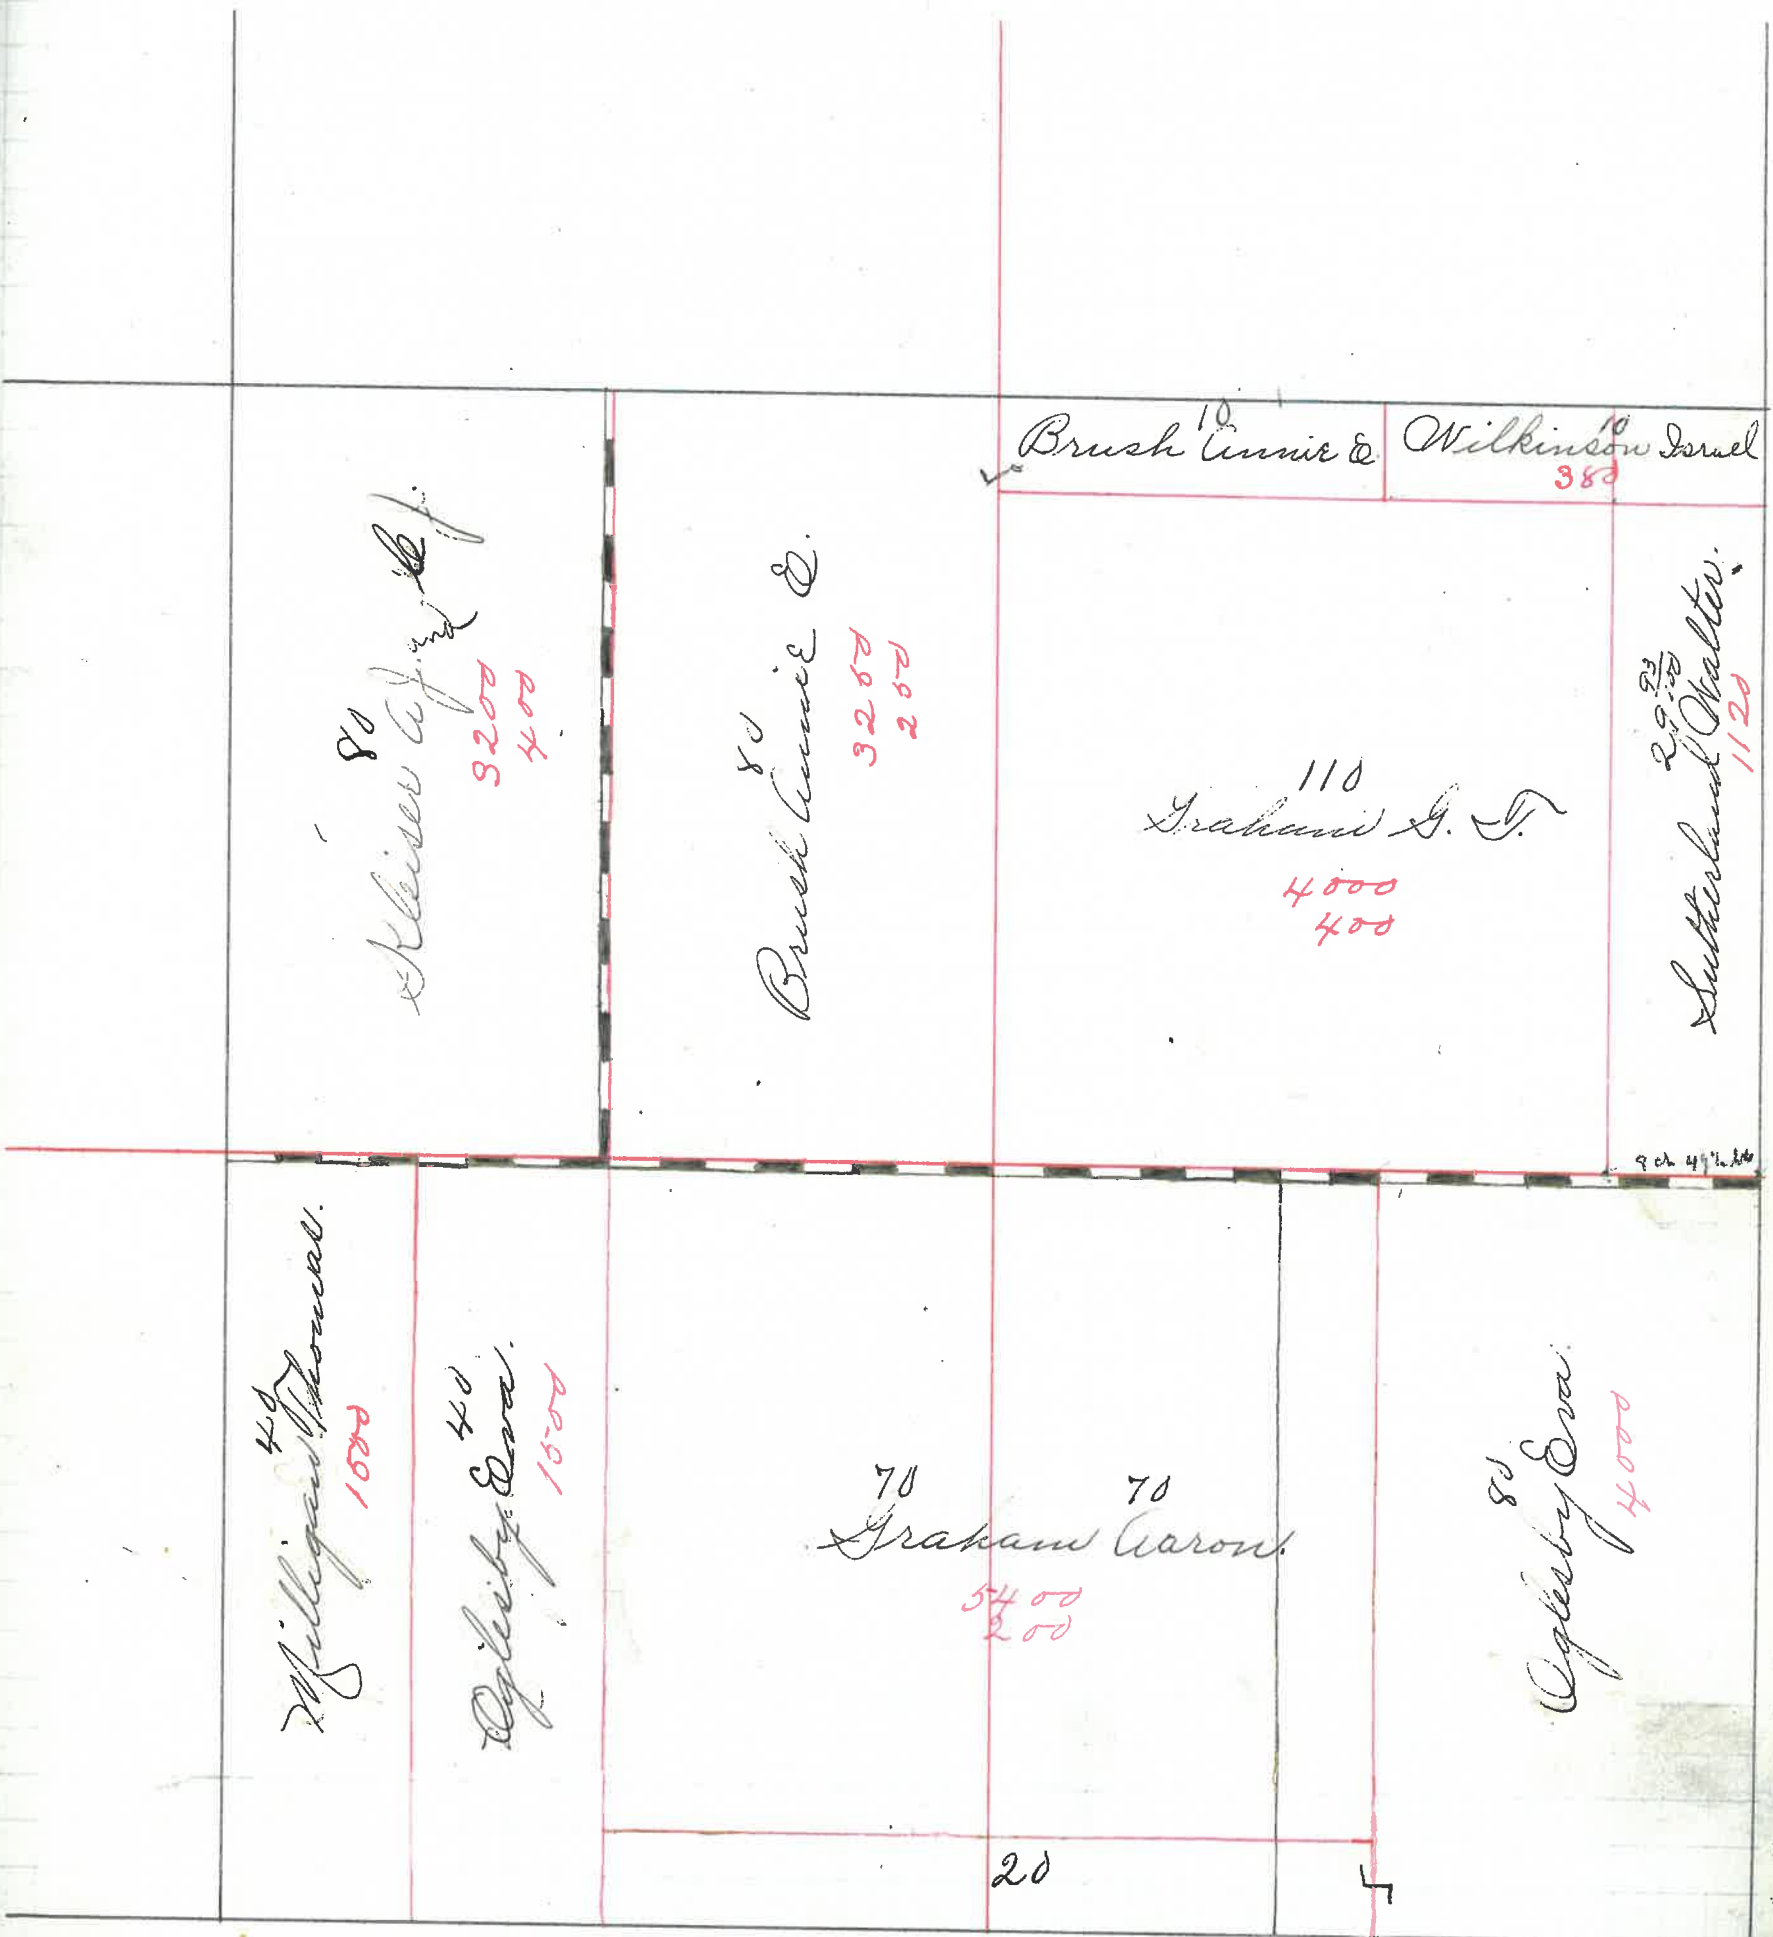 10
Brush Annie E
10
Wilkinson Israel
380
80
Kleiser A J. and C J.
3200
400
80
Brush Annie E.
3250
250
110
Graham G. T.
4000
400
29 93/100
Sutherland Walter.
1120
40
Milligan Thomas.
1500
40
Oglesby Eva.
1500
70 70
Graham Aaron.
5400
200
80
Oglesby Eva.
4000
20